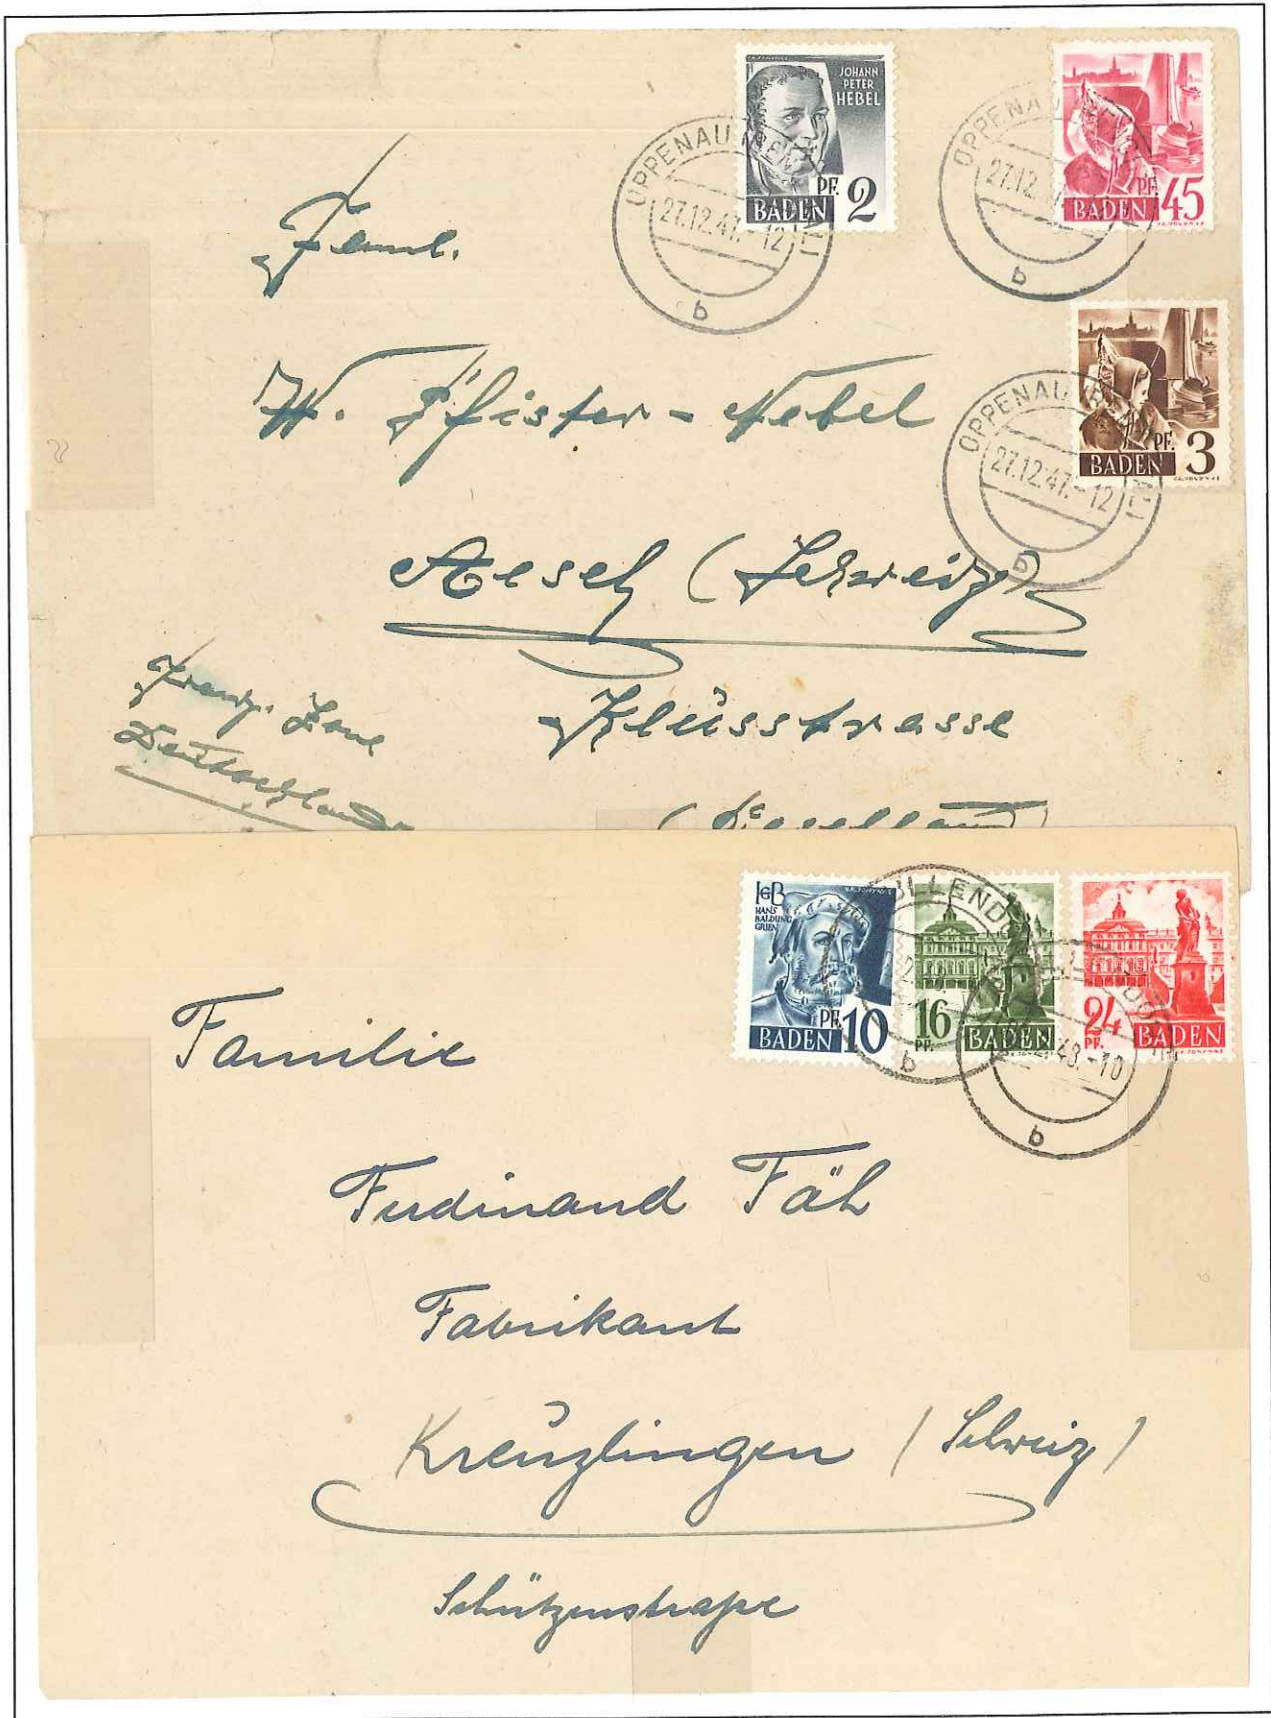 JOHANN
PETER
HEBEL
PF. 2
BADEN
OPPENAU
27.12.47.-12
b
PF. 45
BADEN
OPPENAU
27.12.
b
PF. 3
BADEN
OPPENAU
27.12.47.-12
b
Faml.
W. Pfister-Nebel
Aesch (Schweiz)
Klüsstrasse
(Baselland)
Franz. Zone
Deutschland
HGB
HANS
BALDUNG
GRIEN
PF. 10
BADEN
16
PF.
BADEN
24
PF.
BADEN
48.-10
b
b
Familie
Ferdinand Fäh
Fabrikant
Kreuzlingen (Schweiz)
Schützenstraße